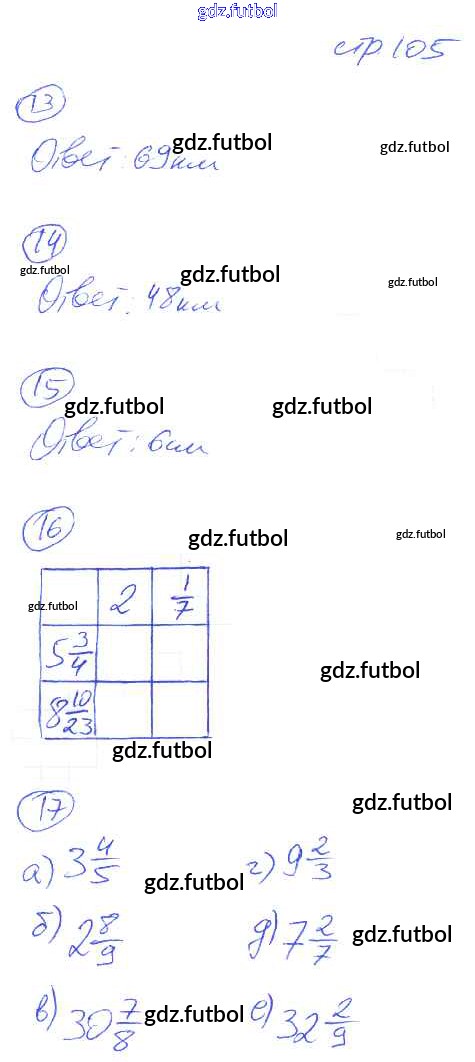 gdz.futbol
стр 105
13
gdz.futbol
gdz.futbol
Ответ: 69 км
14
gdz.futbol
gdz.futbol
gdz.futbol
Ответ: 48 км
15
gdz.futbol
gdz.futbol
Ответ: 6 см
16
gdz.futbol
gdz.futbol
gdz.futbol 2 1/7
5 3/4
gdz.futbol
8 10/23
gdz.futbol
17
gdz.futbol
а) 3 4/5 г) 9 2/3
gdz.futbol
б) 2 8/9 д) 7 2/7
gdz.futbol
в) 30 7/8 gdz.futbol е) 32 2/9
gdz.futbol